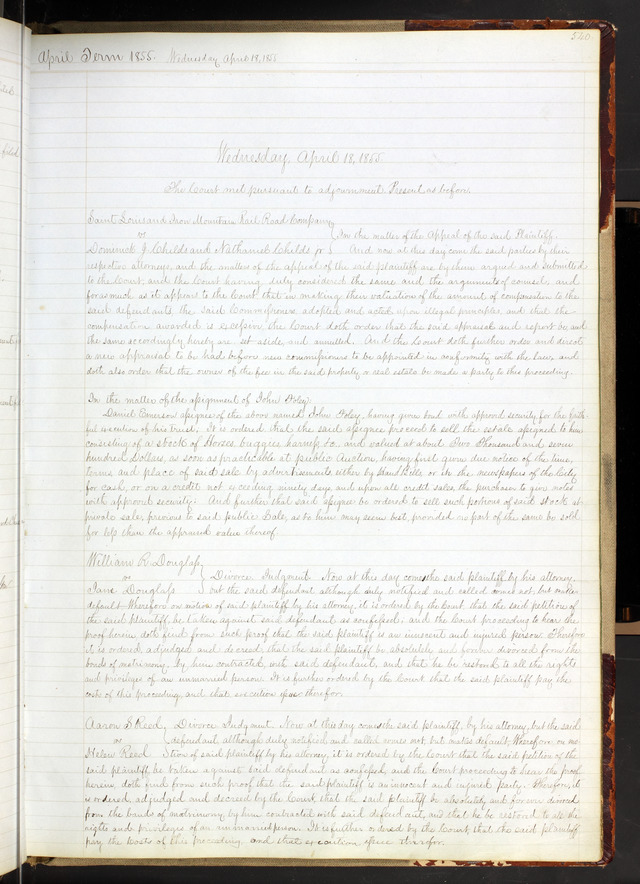 540
April Term 1855. Wednesday April 18, 1855
Wednesday April 18, 1855
The Court met pursuant to adjournment. Present as before.
Saint Louis and Iron Mountain Rail Road Company
vs } In the matter of the Appeal of the said Plaintiff.
Dominick J. Childs and Nathaniel Childs jr } And now at this day come the said parties by their
respective attorneys, and the matters of the appeal of the said plaintiff are by them argued and submitted
to the Court, and the Court having duly considered the same and the arguments of counsel, and
forasmuch as it appears to the Court that in making their valuation of the amount of compensation to the
said defendants the said Commissioners adopted and acted upon illegal principles and that the
compensation awarded is excessive, the Court doth order that the said appraisal and report be and
the same accordingly hereby are set aside and annulled. And the Court doth further order and direct
a new appraisal to be had before new commissioners to be appointed in conformity with the law, and
doth also order that the owner of the fee in the said property or real estate be made a party to this proceeding.
In the matter of the assignment of John Foley.
Daniel Emerson assignee of the above named John Foley, having given bond with approved security for the faith
ful execution of his trust, It is ordered that the said assignee proceed to sell the estate assigned to him
consisting of a stock of Horses, buggies harness &c. and valued at about Two Thousand and seven
hundred Dollars, as soon as practicable at public Auction, having first given due notice of the time,
terms and place of said sale by advertisements either by Hand Bills or in the newspapers of the City
for cash, or on a credit not exceeding ninety days and upon all credit sales, the purchaser to give notes
with approved security: And further that said assignee be ordered to sell such portions of said stock at
private sale, previous to said public Sale, as to him may seem best, provided no part of the same be sold
for less than the appraised value thereof.
William R. Douglass
vs } Divorce Judgment. Now at this day comes the said plaintiff by his attorney,
Jane Douglass } but the said defendant although duly notified and called comes not, but makes
default. Wherefore on motion of said plaintiff by his attorney, it is ordered by the Court that the said petition of
the said plaintiff, be taken against said defendant as confessed; and the Court proceeding to hear the
proof herein, doth find from such proof that the said plaintiff is an innocent and injured person. Therefore
it is ordered, adjudged and decreed, that the said plaintiff be absolutely and forever divorced from the
bonds of matrimony, by him contracted, with said defendant, and that he be restored to all the rights
and privileges of an unmarried person. It is further ordered by the Court that the said plaintiff pay the
costs of this proceeding, and that execution issue therefor.
Aaron S Reed } Divorce Judgment. Now at this day comes the said plaintiff, by his attorney, but the said
vs } defendant, although duly notified and called comes not, but makes default. Wherefore on mo
Helen Reed } tion of said plaintiff by his attorney, it is ordered by the Court that the said petition of the
said plaintiff be taken against said defendant as confessed, and the Court proceeding to hear the proof
herein, doth find from such proof that the said plaintiff is an innocent and injured party. Therefore, it
is ordered, adjudged and decreed by the Court, that the said plaintiff be absolutely and forever divorced
from the bonds of matrimony by him contracted with said defendant, and that he be restored to all the
rights and privileges of an unmarried person. It is further ordered by the Court, that the said plaintiff
pay the Costs of this proceeding, and that execution issue therefor.